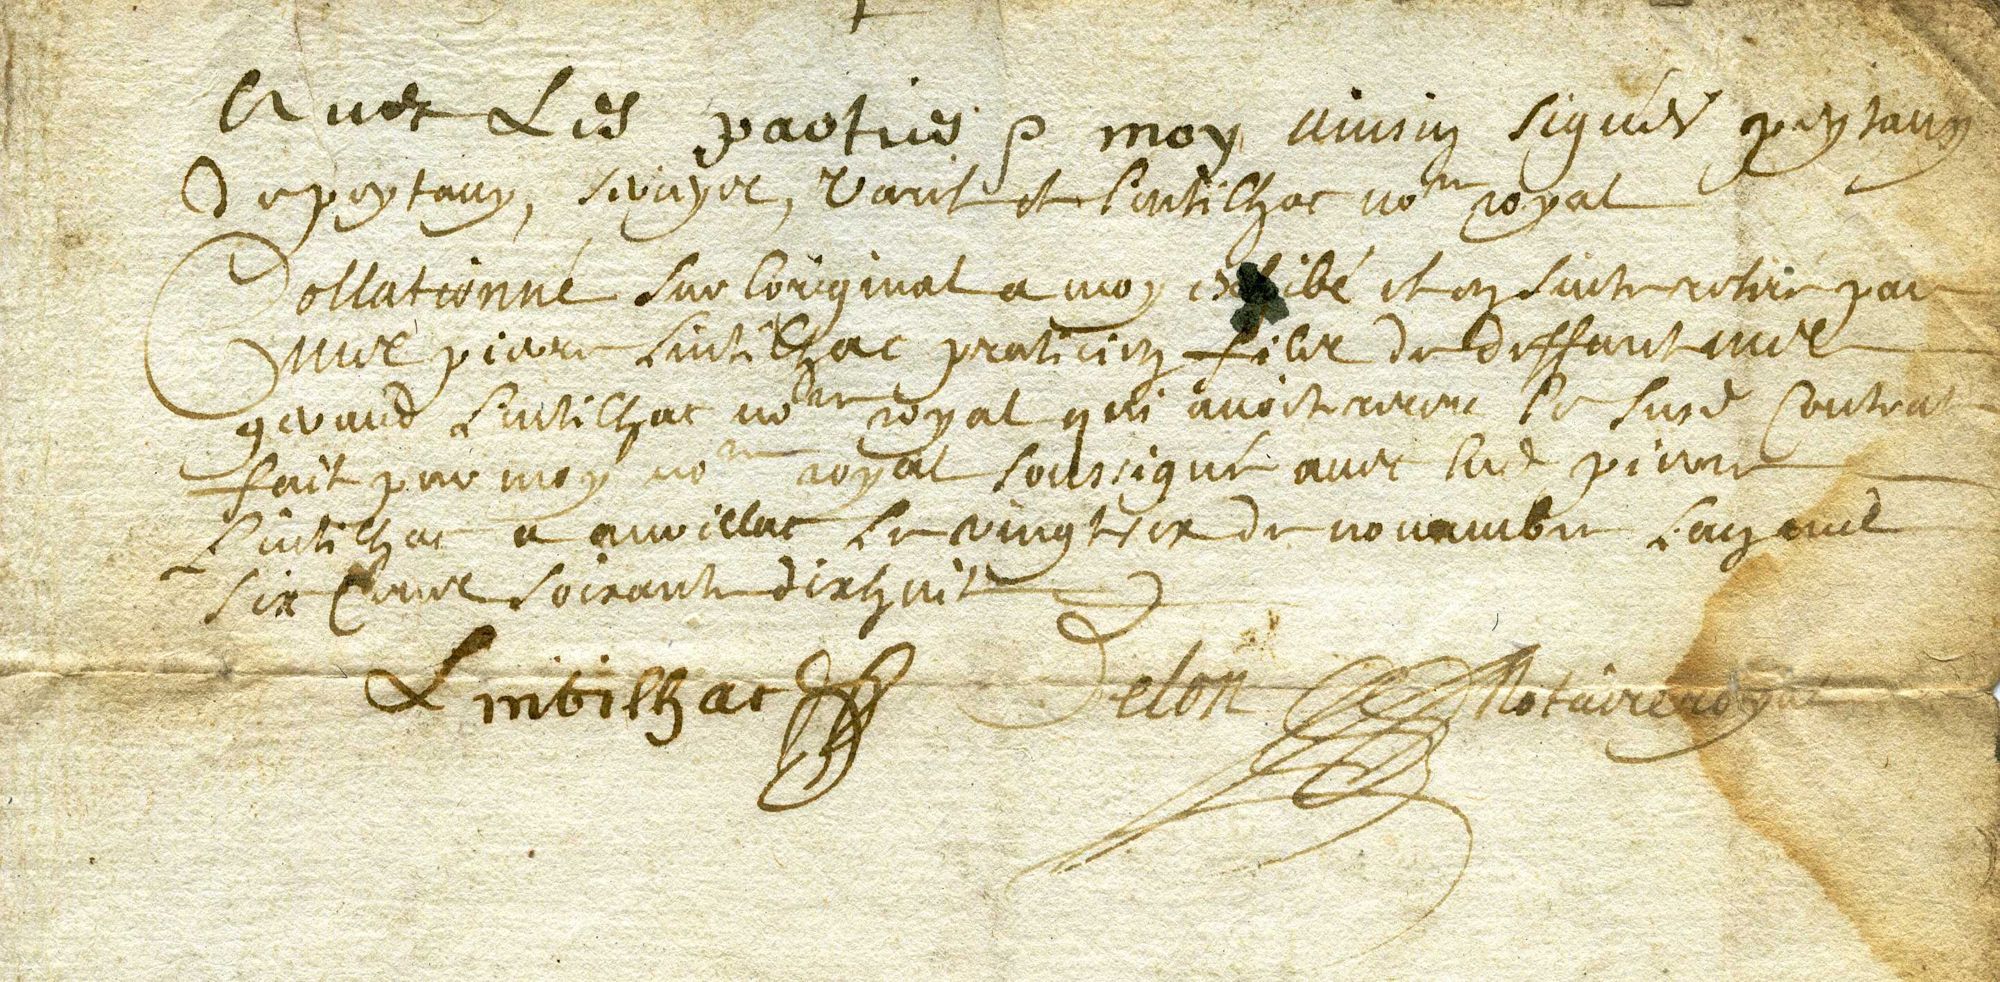 Avec Les parties p moy ainsin signés peytavy
de peytavy, Seguyer, Vaics et Lintilhac no.re royal
Collationné sur loriginal a moy exhibé et en suitte retiré par
me pierre Lintilhac praticien filz de deffunt me
geraud Lintilhac no.re royal qui avoit receu le susd contrat
fait par moy no.re royal soussigné avec led pierre
Lintilhac a aurillac le vingt six de novambre lan mil
six cens soixante dix huit
Lintilhac Delon Notaire royal